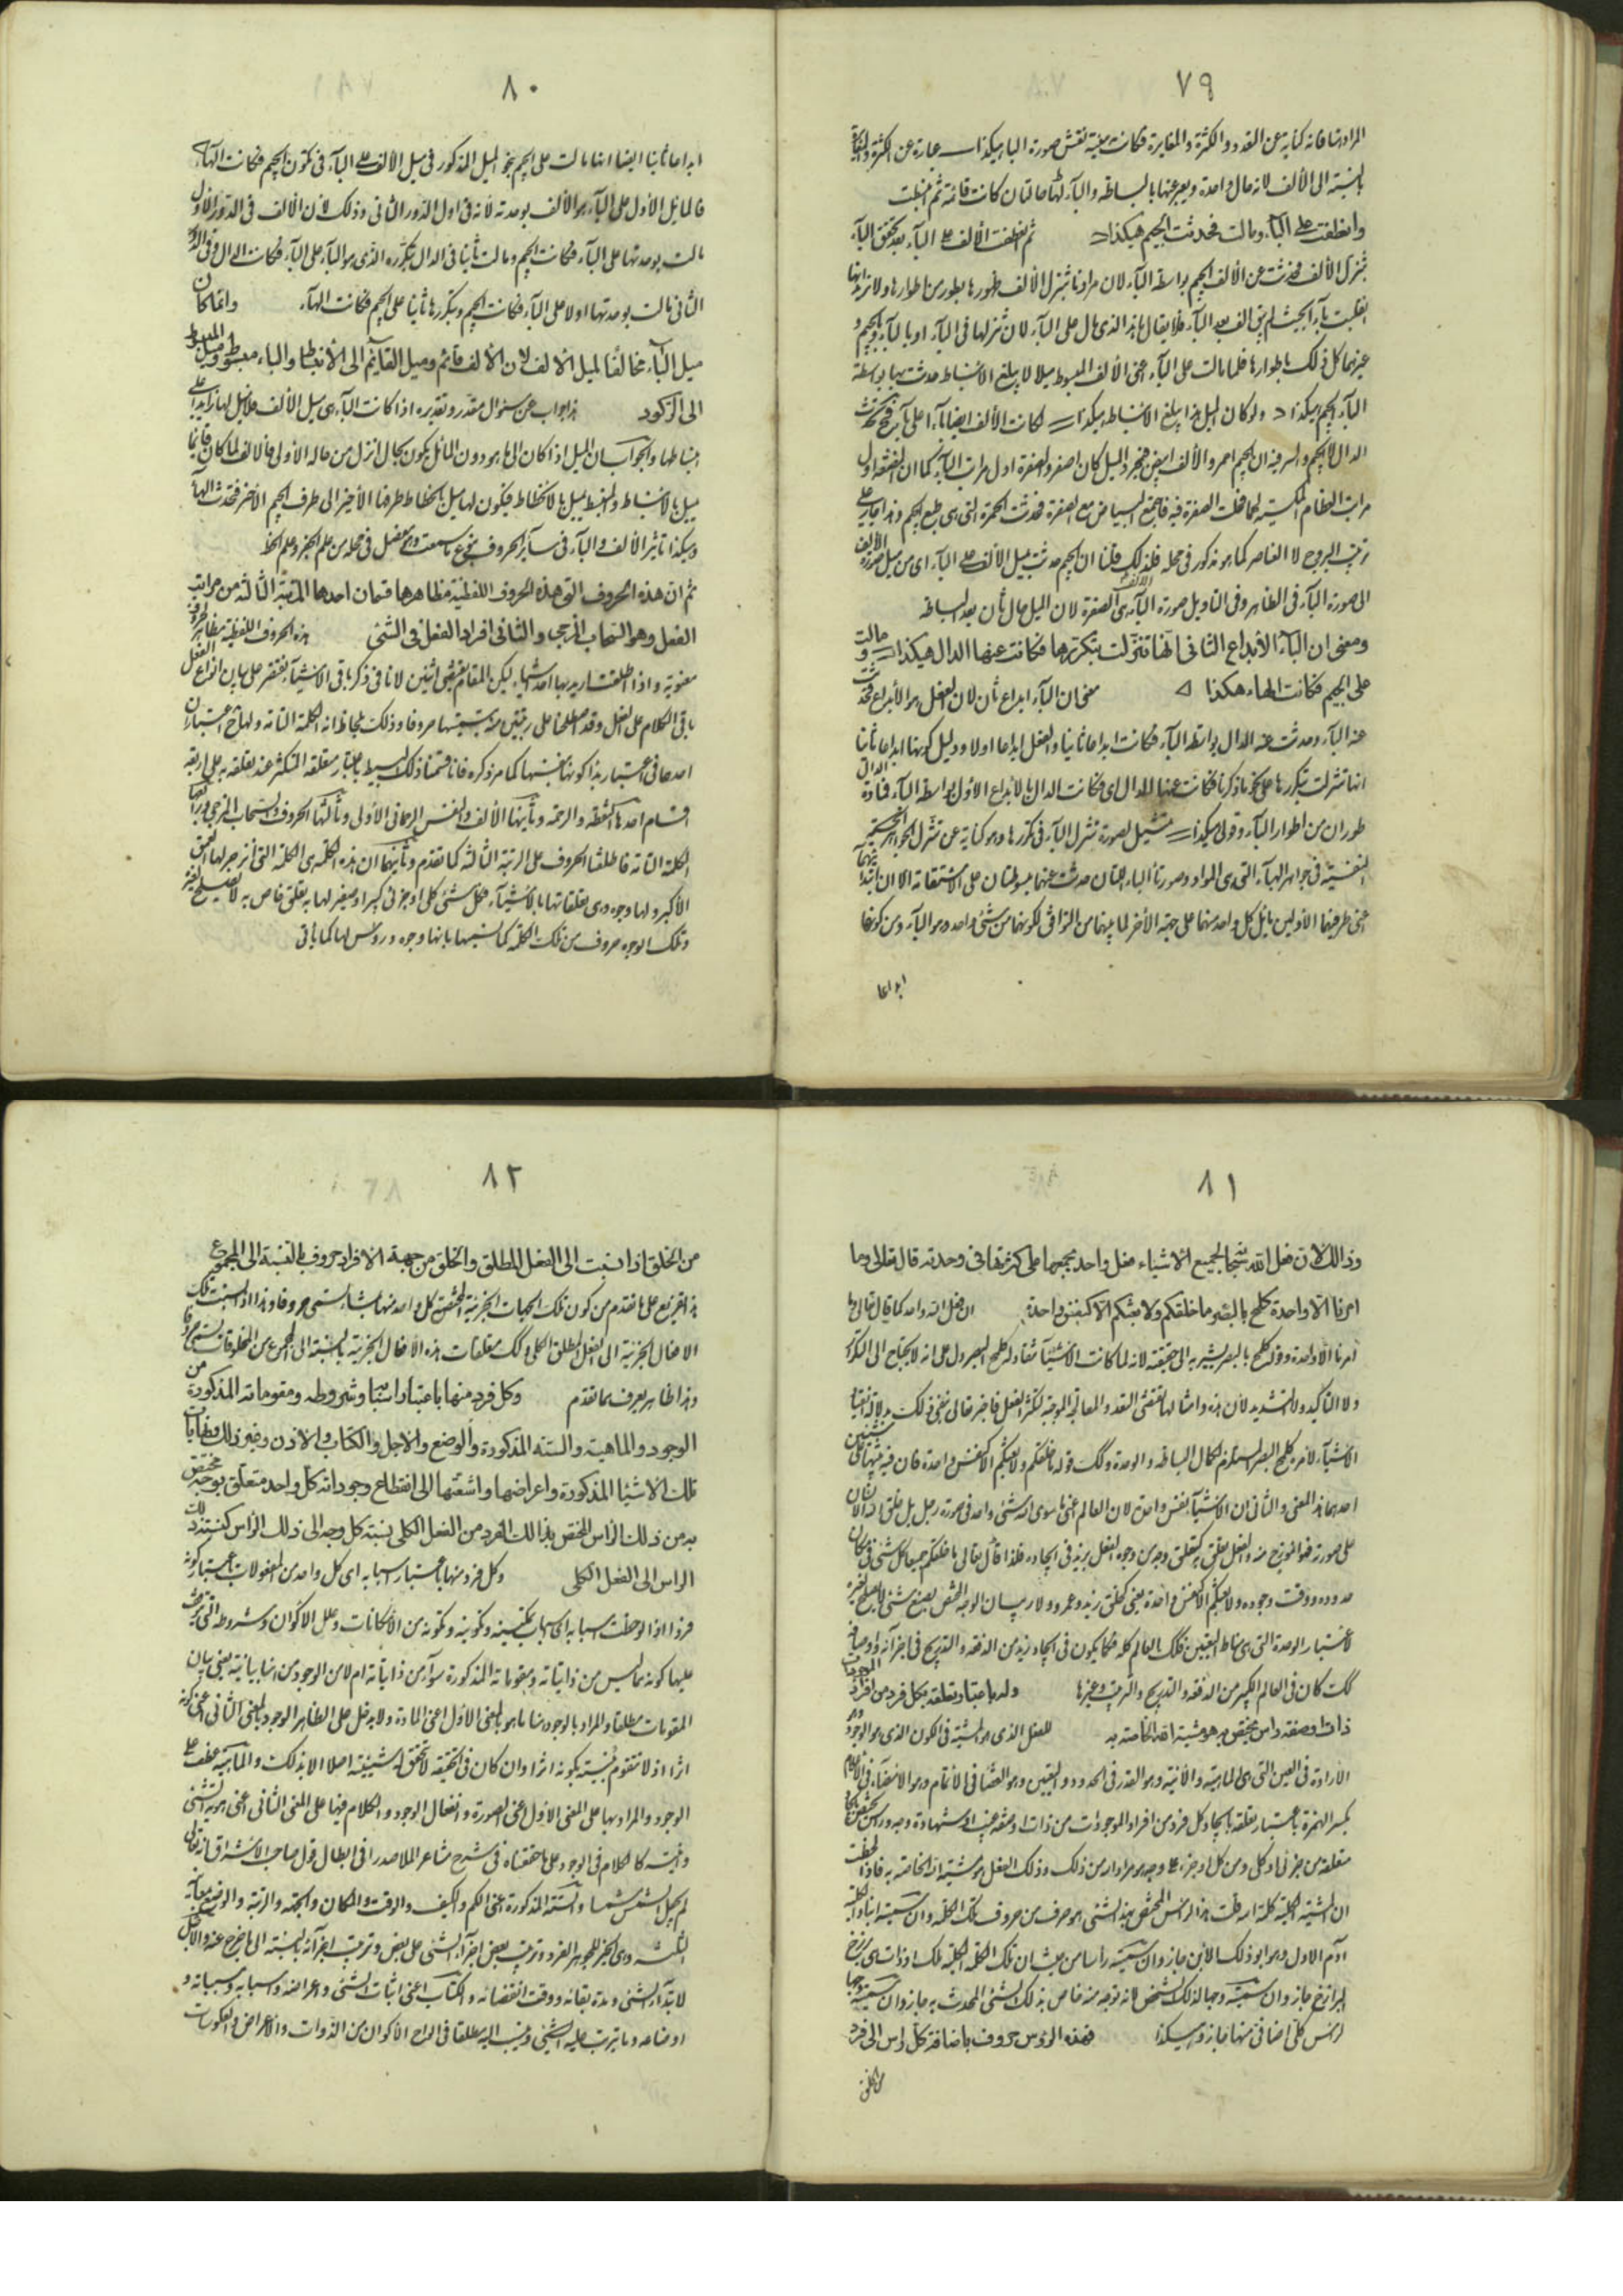 ٧٩
المراد بها فانه كناية عن التعدد والكثرة والمغايرة فكانت منبسطة نقش صورة الباء هكذا ــ عبارة عن الكثرة
بالنسبة الى الألف لانه حال واحدة ويعبر عنها بالبساطة والبآء لها حالتان كانت قائمة ثم انبسطت
وانعطفت على البآء ومالت فحدثت الجيم هكذا ثم انعطفت الألف على البآء بعد تحقق البآء
بتنزل الألف فحدثت عن الألف الجيم بواسطة البآء لان مرادنا بتنزل الألف ظهورها بطور من اطوارها ولا تريد انها
انقلبت بآء بحيث لم يبق الف بعد البآء فلا يقال ما هذا الذي مال على البآء لان تنزلها في البآء او بالبآء والجيم و
غيرهما كل ذلك باطوارها فلما مالت على البآء اعنى الألف المبسوط ميلا لا يبلغ الانبساط حدثت بها بواسطة
البآء الجيم هكذا ولو كان الميل بهذا يبلغ الانبساط هكذا لكانت الألف ايضا بآء اعلى بآء فتحدث
الدال لا الجيم والسر فيه ان الجيم احمر والألف ابيض فبمجرد الميل كان اصفر والصفرة اول مراتب البآء كما ان المضغة اول
مراتب العظام المكسية لحما فحلت الصفرة فيه فاجتمع البياض مع الصفرة فحدثت الحمرة التى هى طبع الجيم وهذا جار على
ترتيب البروج لا العناصر كما هو مذكور في محله فلذلك قلنا ان الجيم حدثت بميل الألف على البآء اى من ميل صورة الألف
الى صورة البآء في الظاهر وفي التاويل صورة البآء هى الصفرة لان الميل حال ثان بعد البساطة
ومعنى ان البآء الأبداع الثانى انها تنزلت بتكررها فكانت عنها الدال هكذا ومالت
على الجيم فكانت الهاء هكذا معنى ان البآء ابداع ثان لان العقل هو الأبداع فحدثت
عنه البآء وحدثت عنه الدال بواسطة البآء فكانت ابداعا ثانيا والعقل ابداعا اولا ودليل كونها ابداعا ثانيا
انها تنزلت بتكررها على نحو ما ذكرنا فكانت عنها الدال اى فكانت الدال بالأبداع الأول بواسطة البآء
طوران من اطوار البآء وقولى هكذا تمثيل لصورة تنزل البآء في تكررها وهو كناية عن تنزل الجواهر
النفسية في جواهر الهبآء التى هى المواد وصورتا الباء اللتان حدثت عنهما مبسوطتان على الاستقامة الا ان
عن طرفيها الأولين مائل كل واحد منهما على جهة الأخر لما بينهما من التوافق لكونهما من شئ واحد وهو البآء ومن كونها
ابداعا
٨٠
ابداعا ثانيا ايضا انها مالت على الجيم بنحو الميل المذكور في ميل الألف على البآء في تكون الجيم فكانت الهآء
فالمائل الأول على البآء هو الألف بوحدته لانه في اول الدور الثانى وذلك لان الألف في الدور الأول
مالت بوحدتها على البآء فكانت الجيم ومالت ثانيا في الدال بتكرره الذى هو البآء على البآء فكانت الدال وفي الدور
الثانى مالت بوحدتها اولا على البآء فكانت الجيم وبتكررها ثانيا على الجيم فكانت الهآء وانما كان
ميل البآء مخالفًا لميل الألف لان الألف قائم وميل القآئم الى الأنبساط والباء مبسوط وميل المبسوط
الى الركود هذا جواب عن سؤال مقدر وتقديره اذا كانت البآء هى ميل الألف
انبساطها والجواب ان الميل اذا كان الى ما هو دون المائل يكون بحال انزل من حاله الأولى فالألف لما كان قائما
يميل بالانبساط والمنبسط يميل بالانحطاط فيكون لها ميل بانحطاط طرفها الأخير الى طرف الجيم الأخر فتحدث الهآء
وهكذا تاثير الألف والبآء في سآئر الحروف بنحو ما سمعت وهو مفصل في محله من علم الجفر وعلم الخط
ثم ان هذه الحروف التى هذه الحروف اللفظية مظاهرها قسمان احدهما المرتبة الثالثة من مراتب
الفعل وهو السحاب المزجى والثانى افراد الفعل في الشئ هذه الحروف اللفظية مظاهر الحروف
معنوية واذا اطلقت اريد بها احد شيئين لكن المقام يقتضى اثنين لانا في ذكر باقى الاشيآء نفتقر على بيان انواع الفعل
باقى الكلام على الفعل وقد اصطلحنا على رتبتين منه بتسميتهما حروفا وذلك بلحاظ انه الكلمة التامة ولها اعتباران
احدهما في اعتبار هذا كونها بنفسها كما مر ذكره فانا قسمنا ذلك البسيط باعتبار متعلقه المتكثر عند تعلقه به على اربعة
اقسام احدها النقطة والرحمة وثانيها الألف والنفس الرحمانى الأولى وثالثها الحروف والسحاب المزجى ورابعها
الكلمة التامة فاطلقنا الحروف على الرتبة الثالثة كما تقدم وثانيهما ان هذه الكلمة هى الكلمة التى انزجر لها العمق
الأكبر ولها وجوه وهى تعلقاتها بالاشيآء فكل شئ كلى او جزئى كبير او صغير لها به تعلق خاص به لا يصلح لغيره
وتلك الوجوه حروف من تلك الكلمة كما نسميها بانها وجوه ورؤس لها كما ياتى
٨١
وذلك لان فعل الله سبحانه لجميع الأشياء فعل واحد يجمعها على كثرتها في وحدته قال تعالى وما
امرنا الا واحدة كلمح بالبصر ما خلقكم ولا بعثكم الا كنفس واحدة ان فعل الله واحد كما قال تعالى وما
امرنا الا واحدة وقوله كلمح بالبصر يشير به الى حقيقته لانه لما كانت الاشيآء تنقاد له كلمح البصر دل على انه لا يحتاج الى التكرار
ولا التاكيد ولا التشديد لأن هذه وامثالها تقتضى التعدد والمعاناة الموجبة لتكثر الفعل فاخبر تعالى بنفى ذلك بدلالة انقياد
الاشيآء لامره كلمح البصر المستلزم لكمال البساطة والوحدة وكذلك قوله ما خلقكم ولا بعثكم الا كنفس واحدة فان فيه تنبيها على شيئين
احدهما هذا المعنى والثانى ان الاشيآء كنفس واحدة لان العالم اعنى ما سوى الله شئ واحد في صورة رجل بل خلق الله الانسان
على صورته فهو انموذج منه والفعل تعلق به كتعلق وجه من وجوه الفعل بزيد في ايجاده فلذا قال تعالى ما خلقكم جميعا كل شئ في مكان
حدوده ووقت وجوده ولا بعثكم الا كنفس واحدة يعنى كخلق زيد وعمرو ولا ريب ان الوجه المختص بصنع شئ لا يصلح لغيره
لاعتبار الوحدة التى هى مناط التعين فكذلك العالم كله فكما يكون في ايجاد زيد من الدفعة والتدريج في اجزآئه واوصافه
كذلك كان في العالم الكبير من الدفعة والتدريج والترتيب وغيرها وله باعتبار تعلقه بكل فرد من افراد الموجودات
ذات او صفة راس يختص به هو مشية الله الخاصة به للفعل الذى هو المشية في الكون الذى هو الوجود وهو
الأرادة في العين التى هى الماهية والأنية وهو القدر في الحدود والتعين وهو القضا في الأتمام وهو الامضآء في الأعلام
بكسر الهمزة باعتبار تعلقه بايجاد كل فرد من افراد الموجودات من ذات او صفة غيب او شهادة وجه وراس يختص بها
متعلقة من جزئى او كلى ومن كل او جزء على وجه هو مراد الله من ذلك وذلك الفعل هو مشية الله الخاصة به فاذا لحظت
ان المشية الكلية كلمة الله قلت هذا الراس المختص بهذا الشئ هو حرف من حروف تلك الكلمة وان سميته ابنا
آدم الأول وهو ابو ذلك الابن جاز وان سميته راسا من حيث ان تلك الكلمة الكلية ملك او ذات هى برزخ
البرازخ جاز وان سميته وجها لذلك الشخص لانه توجه منه خاص بذلك الشئ المحدث به جاز وان سميته وجها
لراس كلى اضافى منها جاز وهكذا فهذه الرؤس حروف باضافة كل راس الى فرد
من الخلق
٨٢
من الخلق اذا نسبت الى الفعل المطلق والخلق من جهة الافراد حروف بالنسبة الى المجموع
هذا تفريع على ما تقدم من كون تلك الجهات الجزئية المختصة كل واحد منها بشئ تسمى حروفا وهذا اذا نسبت تلك
الافعال الجزئية الى الفعل المطلق الكلى وكذلك متعلقات هذه الأفعال الجزئية بالنسبة الى المجموع من المخلوقات تسمى حروفا
وهذا ظاهر يعرف مما تقدم وكل فرد منها باعتبار اسبابه وشروطه ومقوماته المذكورة من
الوجود والماهية والستة المذكورة والوضع والاجل والكتاب والاذن وغير ذلك
تلك الأشياء المذكورة واعراضها واشعتها الى انقطاع وجوداته كل واحد متعلق بوجه مختص
به من ذلك الراس المختص بذلك الفرد من الفعل الكلى نسبة كل وجه الى ذلك الراس كنسبة ذلك
الراس الى الفعل الكلى وكل فرد منها باعتبار اسبابه اى كل واحد من المفعولات باعتبار كونه
فردا اذا لوحظت اسبابه اى اسباب تكوينه وتكونه من الأمكانات وعلل الاكوان وشروطه التى يتوقف
عليها كونه مما ليس من ذاتياته ومقوماته المذكورة سوآء من ذاتياته ام لا من الوجود من هنا بيانية يعنى بيان
المقومات مطلقا والمراد بالوجود هنا ما هو بالمعنى الأول اعنى المادة ولا يدخل على الظاهر الوجود بالمعنى الثانى اعنى كونه
اثرا اذ لا تتقوم بنسبته بكونه اثرا وان كان في الحقيقة لا تحقق له شيئية اصلا الا بذلك والماهية عطف على
الوجود والمراد بها على المعنى الأول اعنى الصورة وانفعال الوجود والكلام فيها على المعنى الثانى اعنى هوية الشئ
وانيته كالكلام في الوجود على ما حققناه في شرح مشاعر الملا صدرا في ابطال قول صاحب الاشراق ان الله تعالى
لم يجعل المشمش مشمشا والستة المذكورة اعنى الكم والكيف والوقت والمكان والجهة والرتبة والوضع
الثلثة وهى الحيز للجوهر الفرد وترتيب بعض اجزآء الشئ على بعض وترتيب اجزآئه بالنسبة الى ما خرج عنه والاجل
لابتدآء الشئ ومدة بقائه ووقت انقضائه والكتاب اعنى اثبات الشئ واعراضه واسبابه ومسبباته و
اوضاعه وما يترتب عليه الشئ وينسب اليه مطلقا في الواح الأكوان من الذوات والأعراض